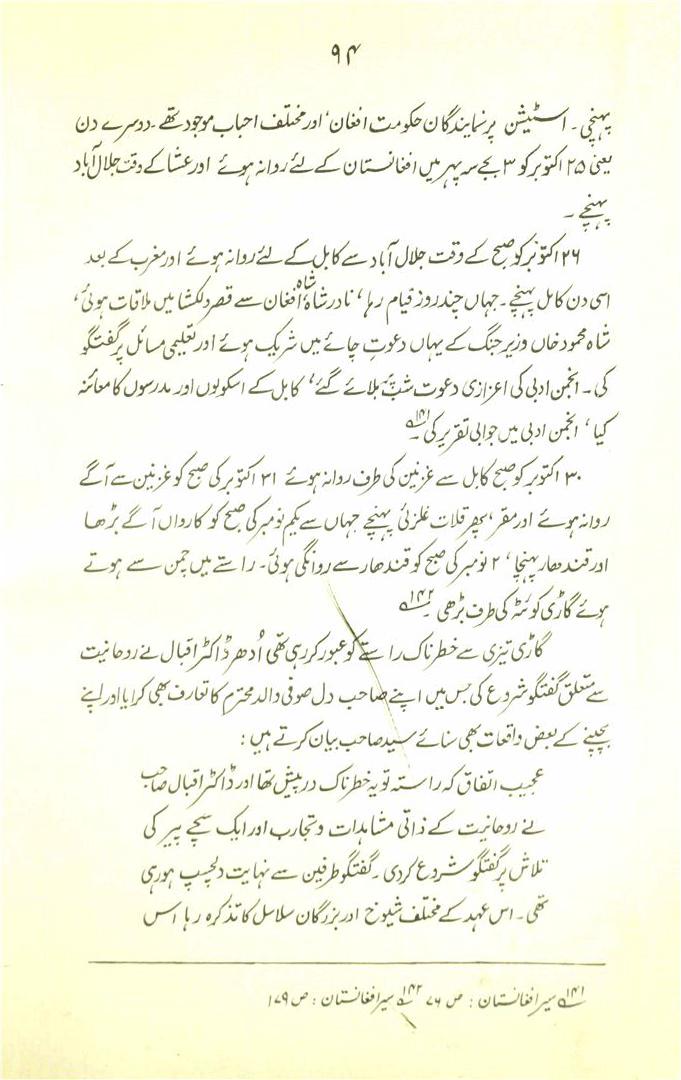 ۹۴
پہنچی۔ اسٹیشن پر نمایندگان حکومت افغان، اور مختلف احباب موجود تھے۔ دوسرے دن
یعنی ۲۵ اکتوبر کو ۳ بجے سہ پہر میں افغانستان کے لئے روانہ ہوئے اور عشا کے وقت جلال آباد
پہنچے۔
۲۶ اکتوبر کو صبح کے وقت جلال آباد سے کابل کے لئے روانہ ہوئے اور مغرب کے بعد
اسی دن کابل پہنچے۔ جہاں چند روز قیام رہا، نادر شاہ شاہ افغان سے قصر دلکشا میں ملاقات ہوئی،
شاہ محمود خاں وزیر جنگ کے یہاں دعوتِ چائے میں شریک ہوئے اور تعلیمی مسائل پر گفتگو
کی۔ انجمن ادبی کی اعزازی دعوت شب پر بلائے گئے، کابل کے اسکولوں اور مدرسوں کا معائنہ
کیا، انجمن ادبی میں جوابی تقریر کی۔ ۱۴۱
۳۰ اکتوبر کو صبح کابل سے غزنین کی طرف روانہ ہوئے ۳۱ اکتوبر کی صبح کو غزنین سے آگے
روانہ ہوئے اور مقر، پھر قلات غلزئی پہنچے جہاں سے یکم نومبر کی صبح کو کارواں آگے بڑھا
اور قندھار پہنچا، ۲ نومبر کی صبح کو قندھار سے روانگی ہوئی۔ راستے میں چمن سے ہوتے
ہوئے گاڑی کوئٹہ کی طرف بڑھی۔ ۱۴۲
گاڑی تیزی سے خطرناک راستے کو عبور کر رہی تھی اُدھر ڈاکٹر اقبال نے روحانیت
سے متعلق گفتگو شروع کی جس میں اپنے صاحب دل صوفی والد محترم کا تعارف بھی کرایا اور اپنے
بچپنے کے بعض واقعات بھی سنائے سید صاحب بیان کرتے ہیں:
عجیب اتفاق کہ راستہ تو یہ خطرناک درپیش تھا اور ڈاکٹر اقبال صاحب
نے روحانیت کے ذاتی مشاہدات و تجارب اور ایک سچے پیر کی
تلاش پر گفتگو شروع کردی۔ گفتگو طرفین سے نہایت دلچسپ ہو رہی
تھی۔ اس عہد کے مختلف شیوخ اور بزرگان سلاسل کا تذکرہ رہا اس
۱۴۱ سیر افغانستان: ص ۷۶ ۱۴۲ سیر افغانستان: ص ۱۷۹